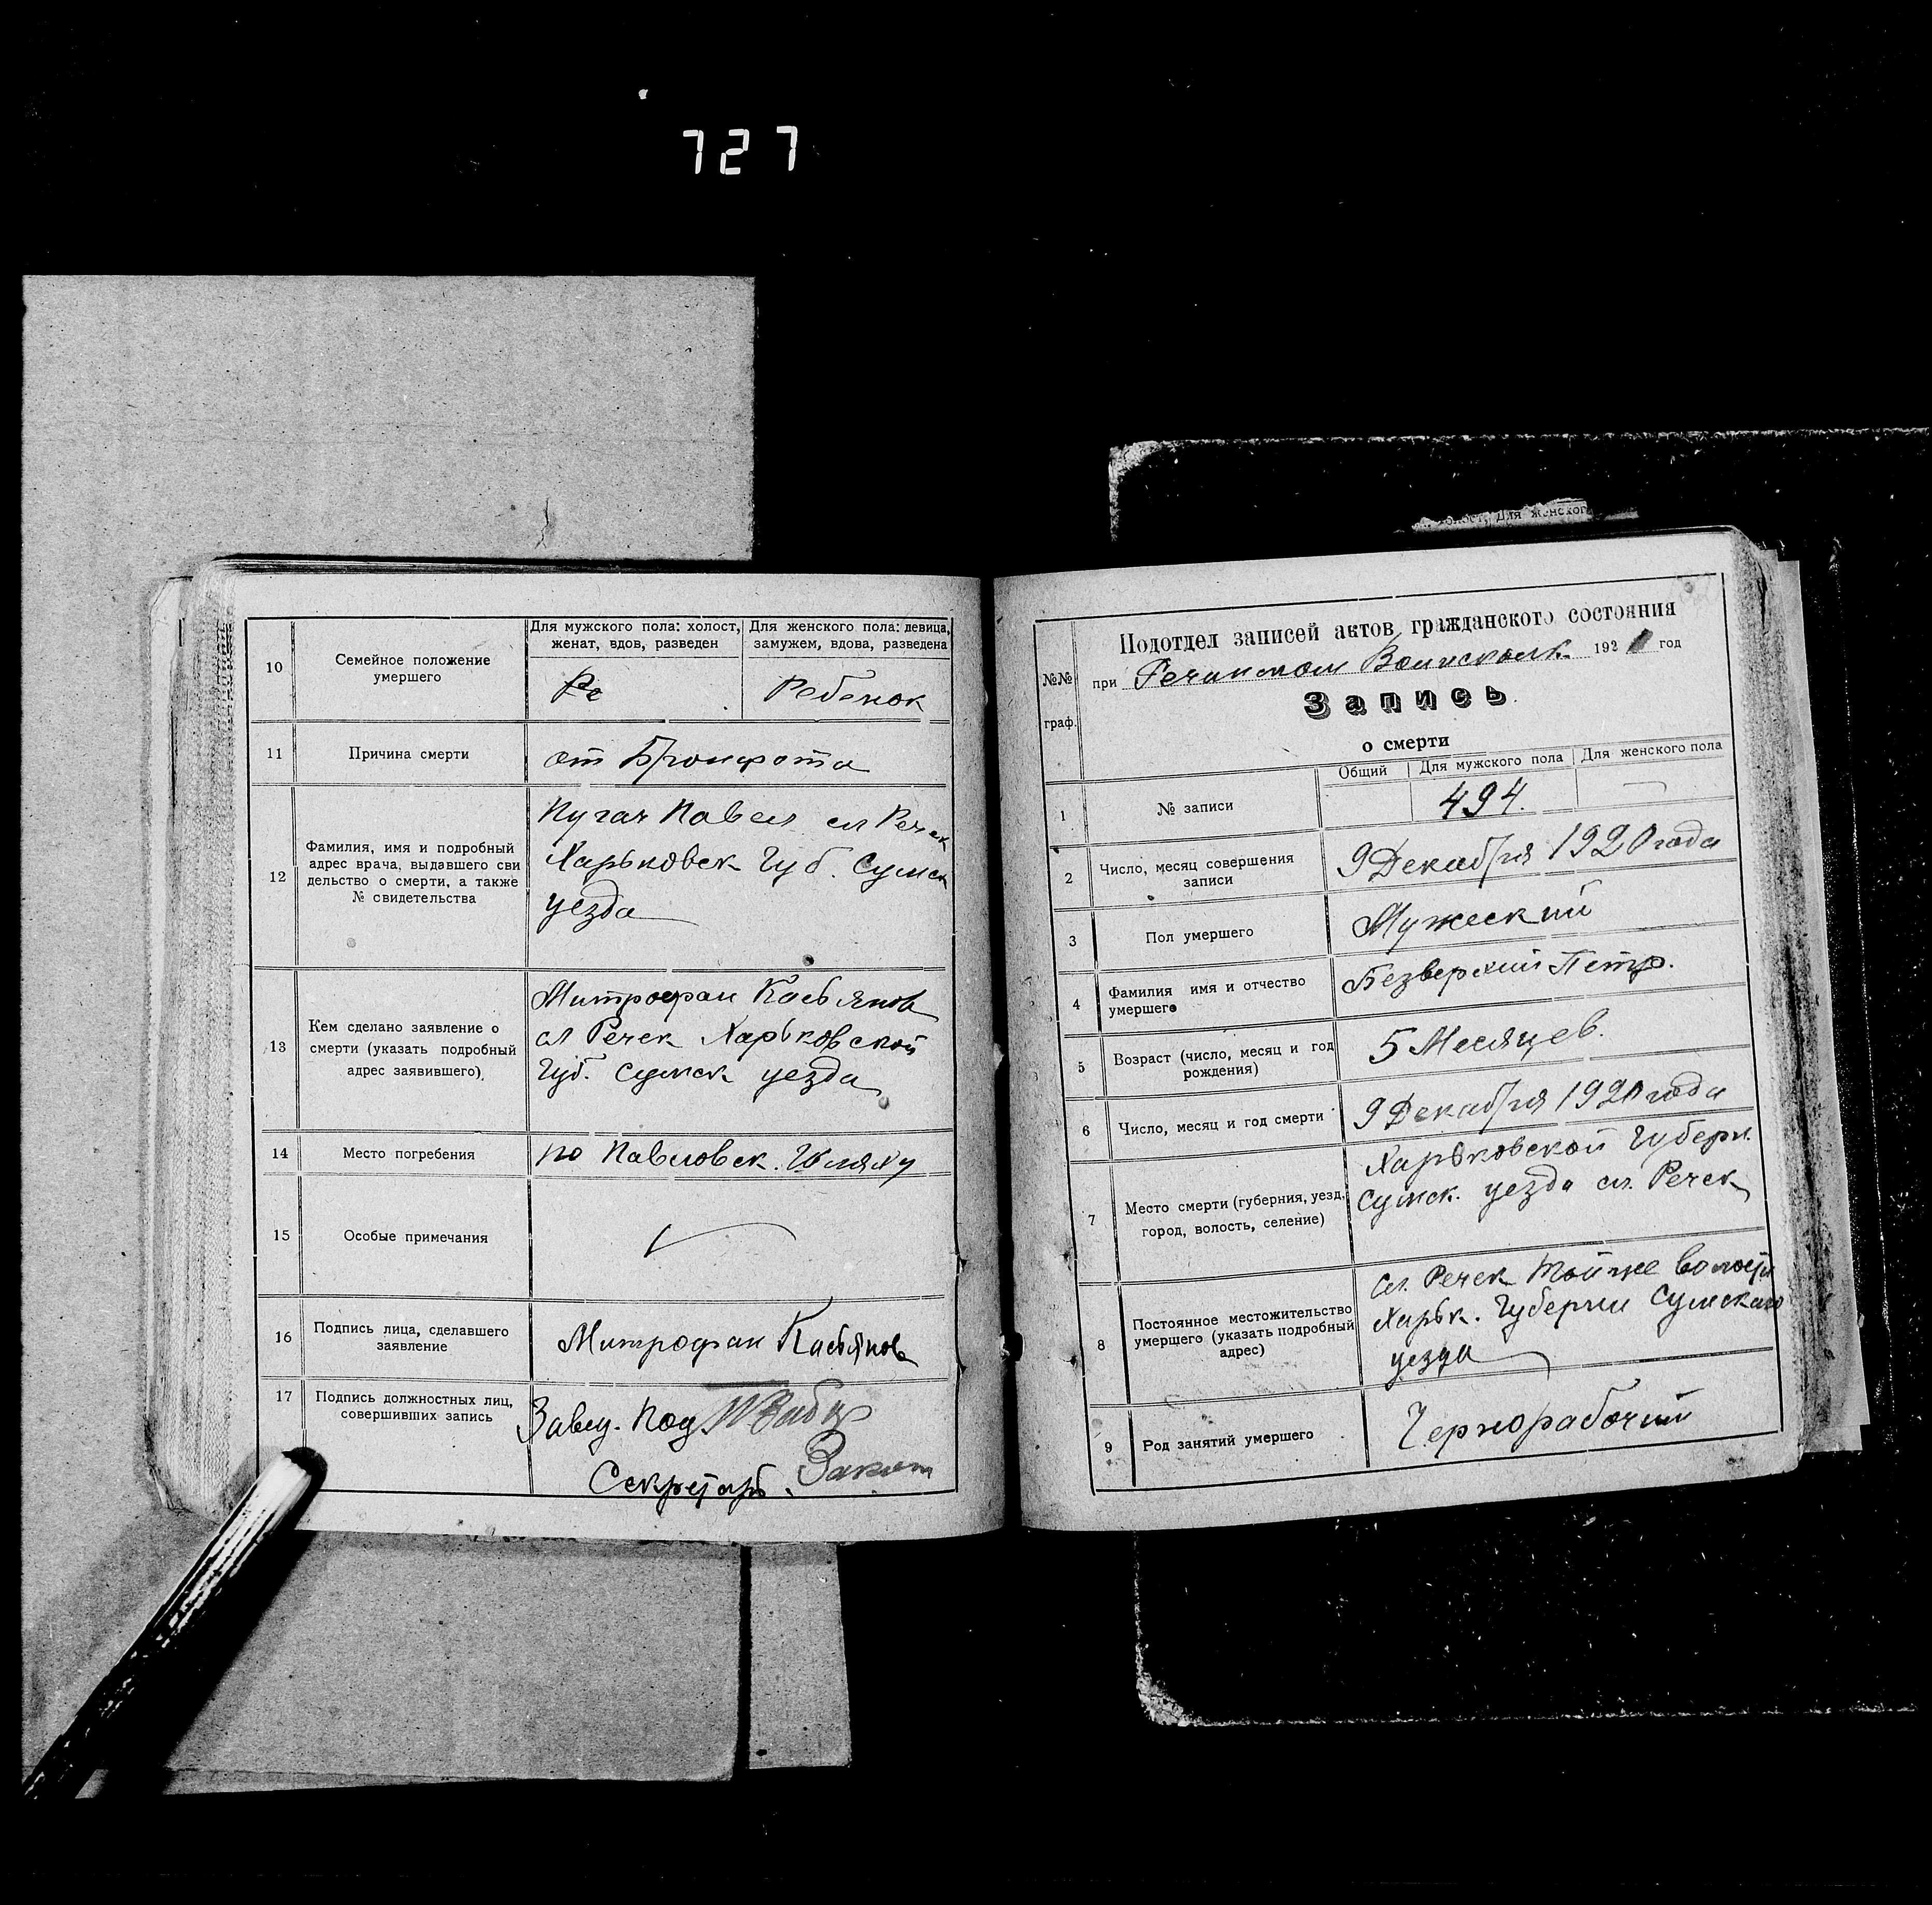 727
10
Семейное положение умершего
Для мужского пола: холост, женат, вдов, разведен
Для женского пола: девица, замужем, вдова, разведена
Ре
Ребенок
11
Причина смерти
от
12
Фамилия, имя и подробный
адрес врача, выдавшего сви
дельство о смерти, а также
№ свидетельства
Пугач Павел сл Речек
Харьковск Губ. Сумск
уезда
13
Кем сделано заявление о
смерти (указать подробный
адрес заявившего)
Митрофан Касьянов
сл Речек Харьковской
Губ. Сумск уезда
14
Место погребения
по Павловск. Шляху
15
Особые примечания
16
Подпись лица, сделавшего
заявление
Митрофан Касьянов
17
Подпись должностных лиц,
совершивших запись
Завед. Под.
Секретарь.
Для женског
Подотдел записей актов гражданского состояния
№№
граф.
при 192 год
Запись
о смерти
Общий
Для мужского пола
Для женского пола
1
№ записи
494.
2
Число, месяц совершения
записи
9 Декабря 1920 года
3
Пол умершего
Мужеский
4
Фамилия имя и отчество
умершего
Безверхий Петр.
5
Возраст (число, месяц и год
рождения)
5 Месяцев.
6
Число, месяц и год смерти
9 Декабря 1920 года
7
Место смерти (губерния, уезд,
город, волость, селение)
Харьковской Губерн.
Сумск. уезда сл. Речек
8
Постоянное местожительство
умершего (указать подробный
адрес)
Сл. Речек Тойже волости
Харьк. Губернии Сумскаго
уезда
9
Род занятий умершего
Чернорабочий